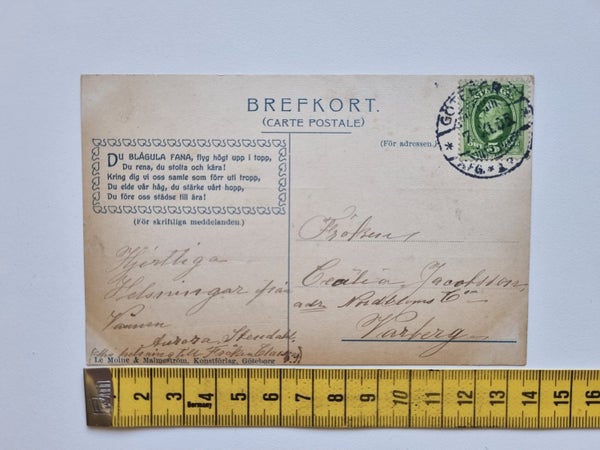 BREFKORT.
(CARTE POSTALE)
DU BLÅGULA FANA, flyg högt upp i topp,
Du rena, du stolta och kära!
Kring dig vi oss samle som förr uti tropp,
Du elde vår håg, du stärke vårt hopp,
Du före oss städse till ära!
(För skriftliga meddelanden.)
(För adressen.)
Hjertliga
Helsningar från
Vännen
Aurora Stendahl
helsning till Fröken
Le Moine & Malmeström, Konstförlag, Göteborg
Fröken,
Cecilia Jacobsson,
adr Nordbloms Co
Varberg
GÖTEBORG
AFG.
1 2 3 4 5 6 7 8 9 10 11 12 13 14 15 16
Germany